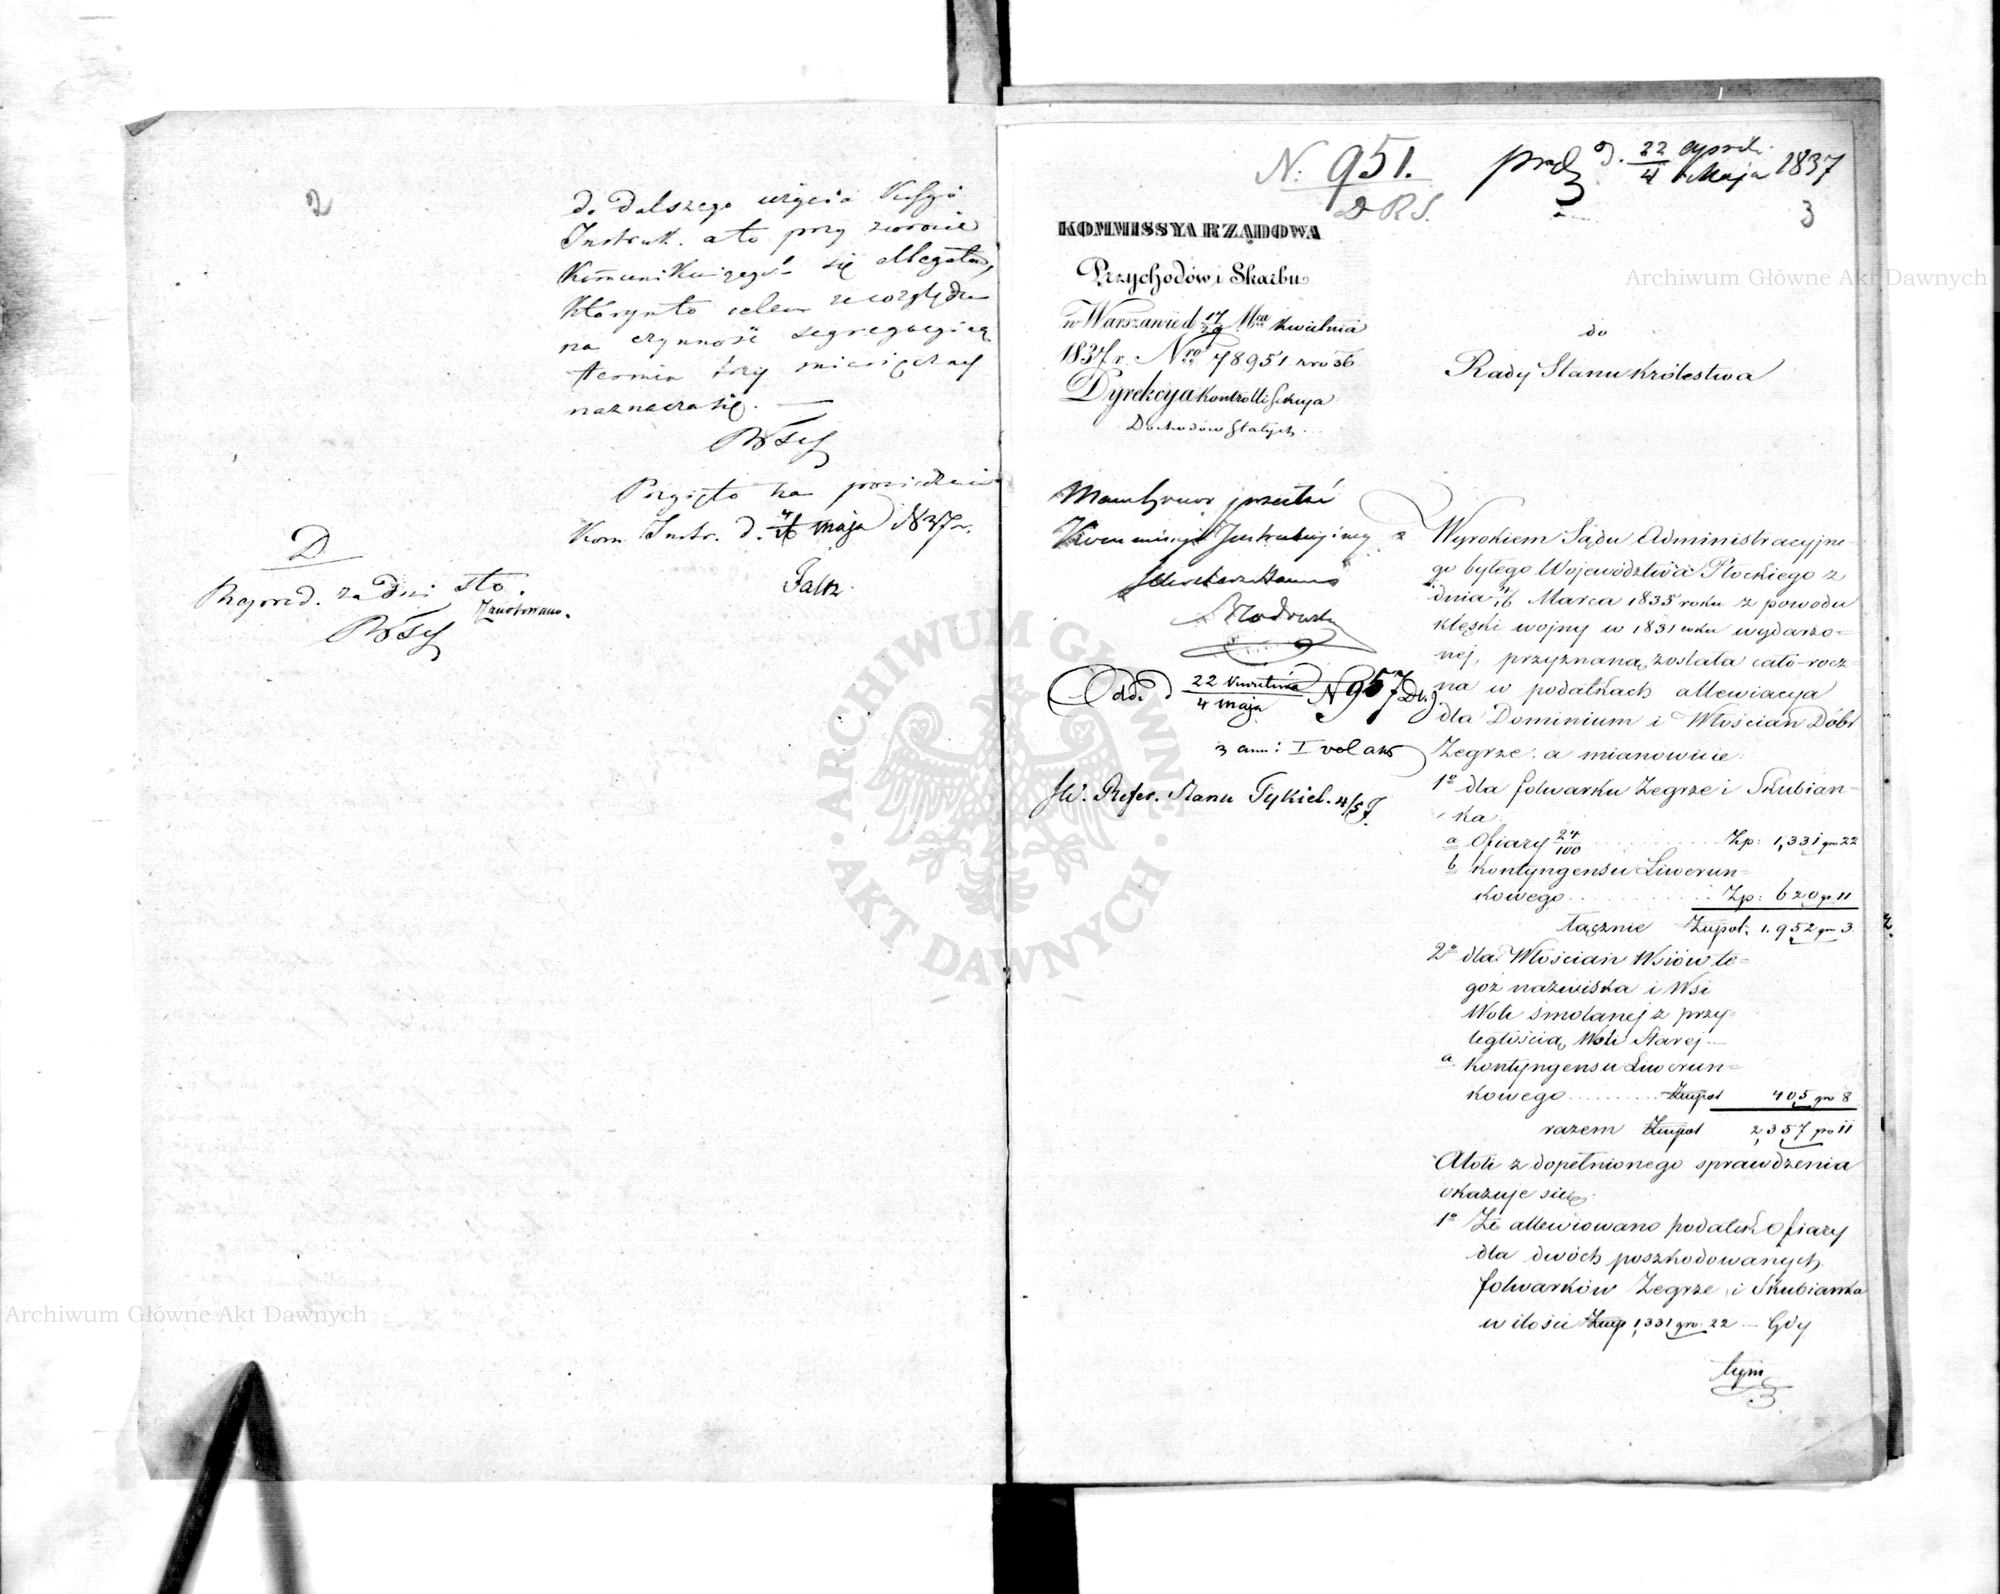 2
do dalszego użycia
Instruk. a to przy zwrocie
się allegatów,
Którym to celem ze względu
na czynność segregacyjną
termin trzy miesięczny
naznacza się. —
Przyjęto na posiedzeniu
Kom Instr. d. maja 1837 r.
D
Repred. za Dni sto.
Zanotowano.
N: 951.
D R S.
prez d. 22/4 Maja 1837
3
KOMMISSYA RZĄDOWA
Przychodów i Skarbu
w Warszawie d 17/29 Mca Kwietnia
1837 r. Nro 78951
Dyrekcya Kontrolli Sekcya
Dochodów Stałych
do
Rady Stanu Królestwa
Kommissyi Instrukcyjney
Odd. d 22 Kwietnia/4 maja N 957
3 ann: I vol akt
JW. Refer. Stanu Tykiel. 4/5
Wyrokiem Sądu Administracyjne=
go byłego Województwa Płockiego z
dnia 4/16 Marca 1835 roku z powodu
klęski wojny w 1831 roku wydarzo=
nej, przyznaną została cało-rocz
na w podatkach allewiacya
dla Dominium i Włościan Dóbr
Zegrze, a mianowicie:
1o dla folwarku Zegrze i Skubian=
ka
a Ofiary 24/100 Zp: 1,331 gr 22
b Kontyngensu Liwerun=
kowego Zp: 620 gr 11
łącznie Złpol: 1,952 gr 3
2o dla Włościan Wsiów te=
goż nazwiska i Wsi
Woli Smolanej z przy=
ległością Woli Starej —
a Kontyngensu Liwerun=
kowego Złpol 405 gr 8
razem Złpol 2,357 gr 11
Atoli z dopełnionego sprawdzenia
okazuje się,
1o Że allewiowano podatek Ofiary
dla dwóch poszkodowanych
folwarków Zegrze i Skubianka
w ilości Złp 1,331 gr 22 — Gdy
tym
ARCHIWUM GŁÓWNE · AKT DAWNYCH ·
Archiwum Główne Akt Dawnych
Archiwum Główne Akt Dawnych